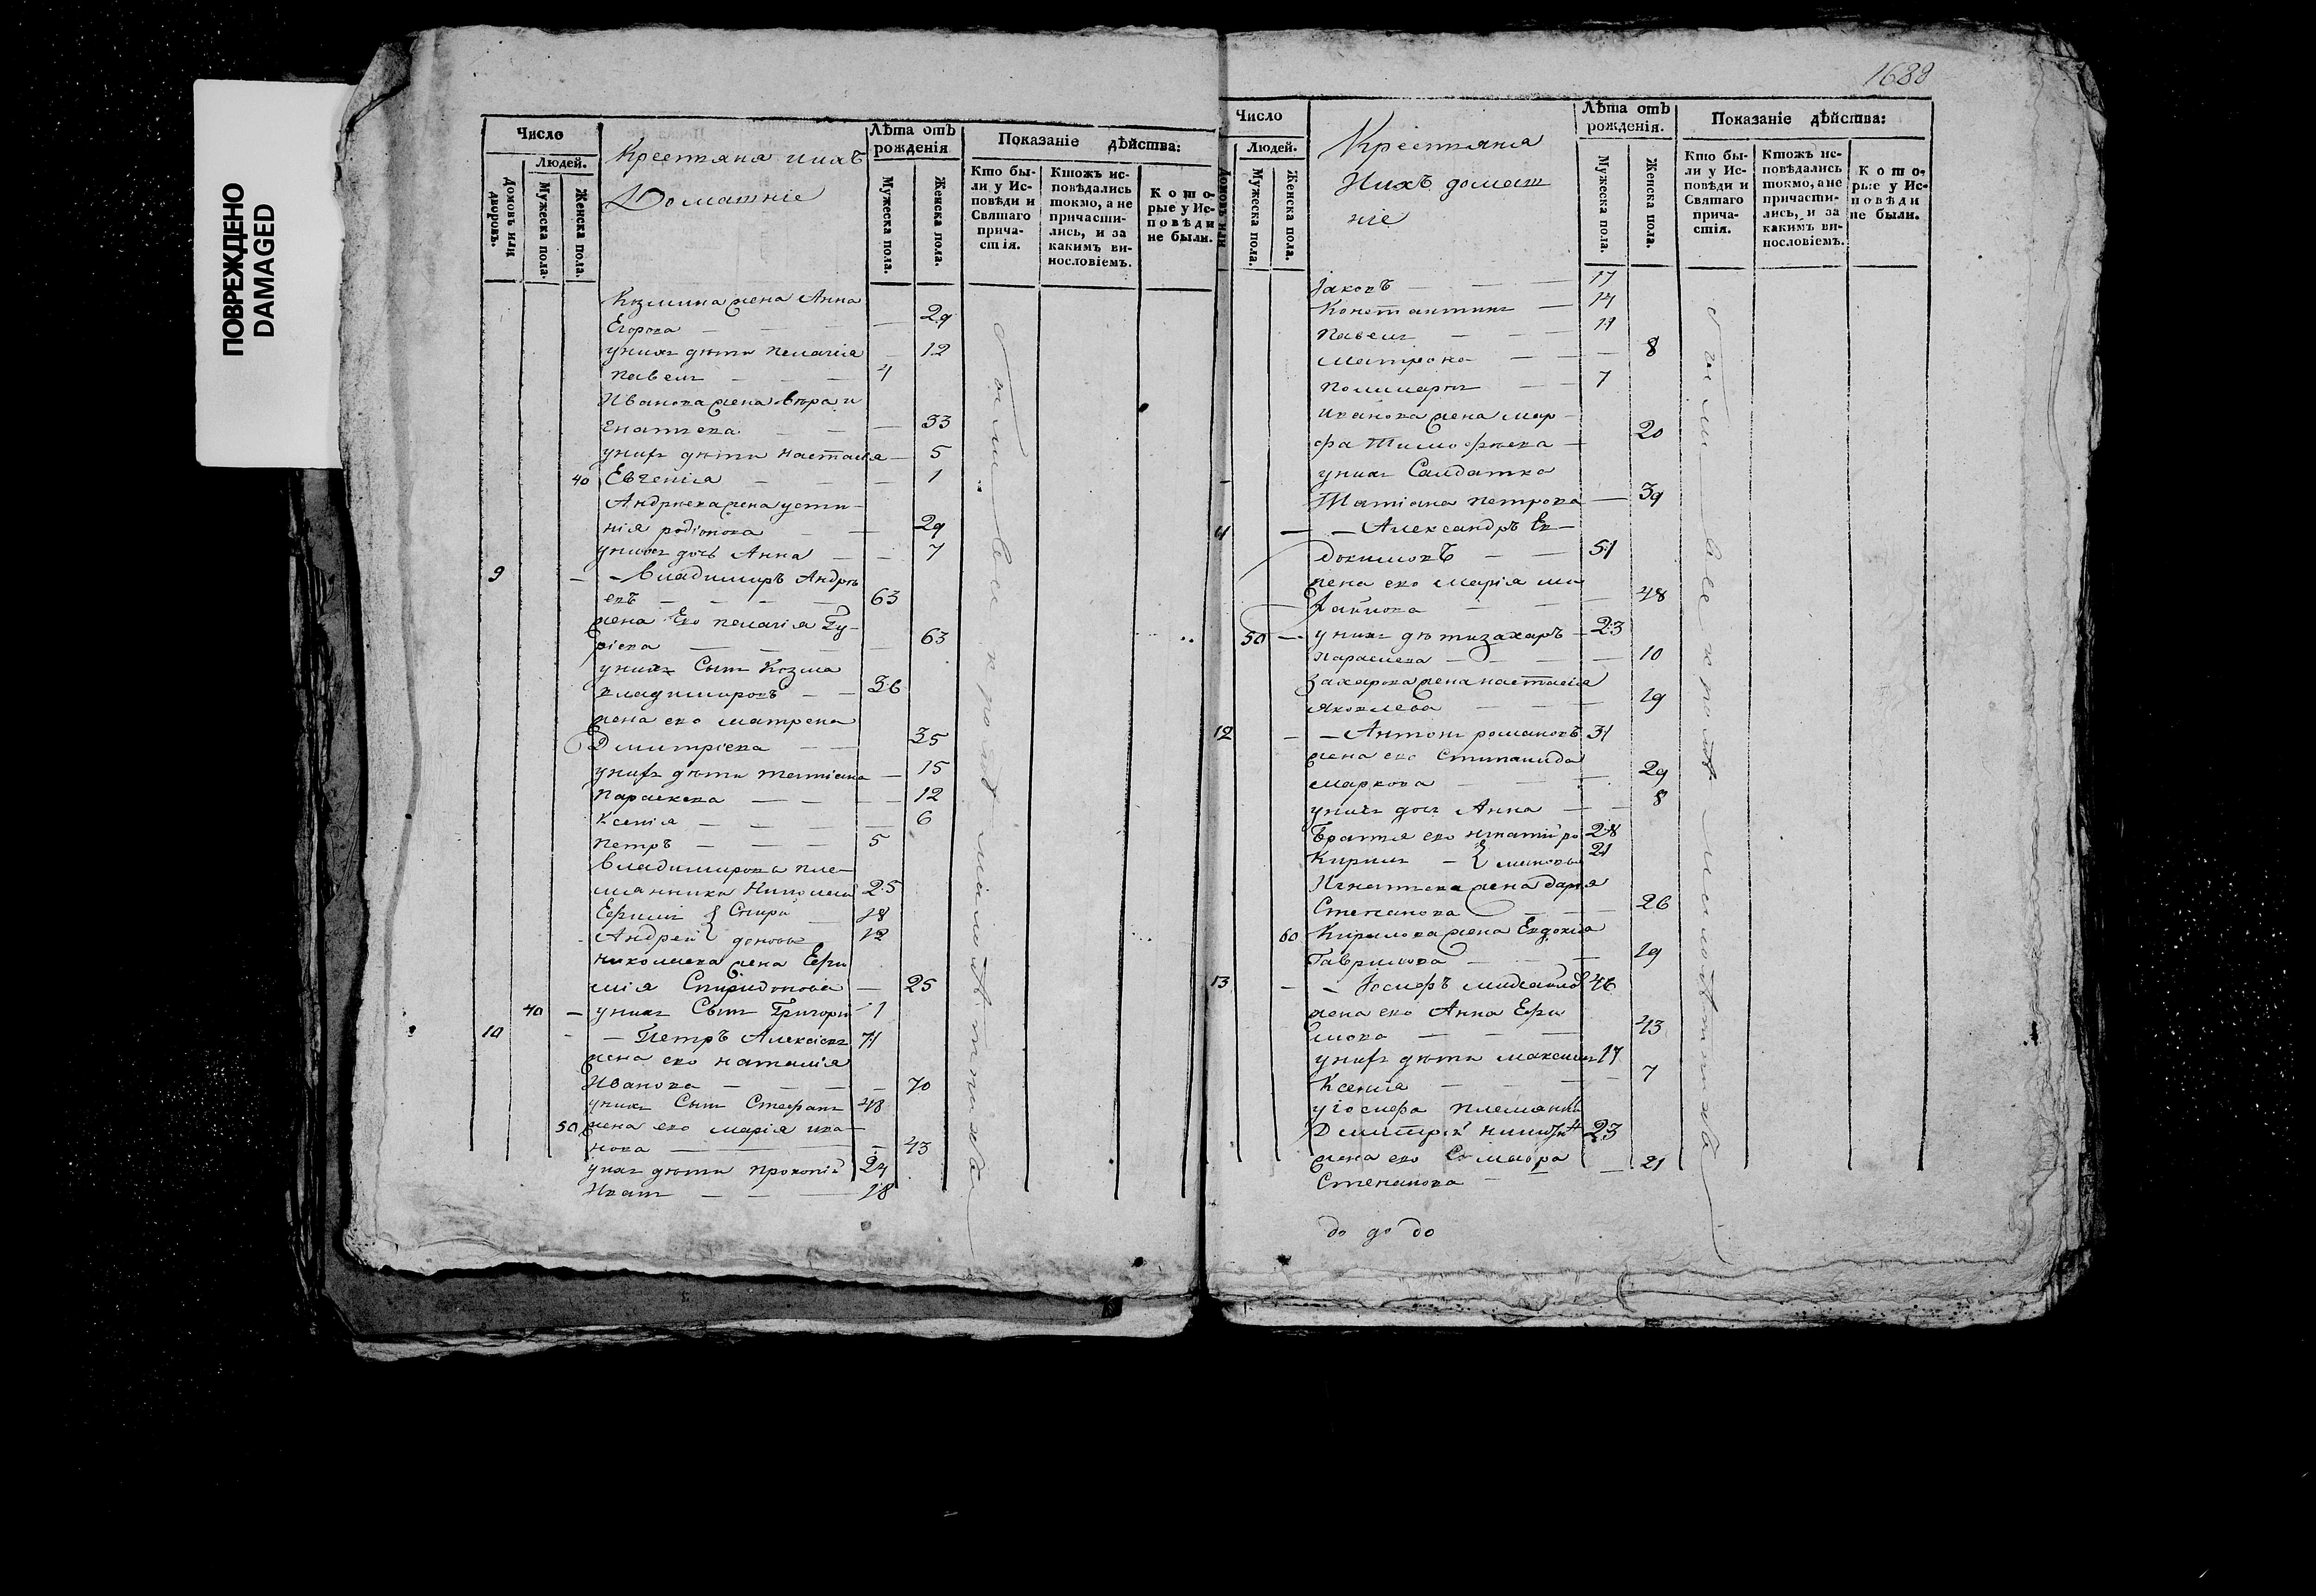 ПОВРЕЖДЕНО
DAMAGED
Число
Людей.
Домовъ или дворовъ.
Мужеска пола.
Женска пола.
Крестьяна ихъ
Домашніе
Лѣта отъ рожденія
Мужеска пола.
Женска пола.
Показаніе дѣйства:
Кто бы-
ли у Ис-
повѣди и
Святаго
прича-
стія.
Ктожъ ис-
повѣдались
токмо, а не
причасти-
лись, и за
какимъ ви-
нословіемъ.
Кото-
рые у Ис-
повѣди
не были.
Козмина жена Анна
Егорова — 29
у нихъ дѣти Пелагія — 12
Павелъ — 4
Иванова жена
33
у нихъ дѣти Настасья — 5
40 Евгенія — 1
Андреева жена Усти-
нія Родіонова — 29
у нихъ дочь Анна — 7
9 — Владимиръ Андре
евъ — 63
жена ево Пелагія Гу-
ріева — 63
у нихъ Сынъ Козма
Владимировъ — 36
жена ево Матрена
Дмитріева — 35
у нихъ дѣти Татіана — 15
Параскева — 12
Ксенія — 6
Петръ — 5
Владимирова пле-
мянника Николай 25
Ефимъ { Спири — 18
Андрей { доновы 12
Николаева жена Ефи
мія Спиридонова — 25
40 — у нихъ Сынъ Григорій 1
10 — Петръ Алексіевъ 71
жена ево Наталія
Иванова — 70
у нихъ Сынъ Стефанъ 48
50 жена ево Марія Ива
нова — 43
у нихъ дѣти Прокопій 24
Иванъ — 18
1688
Число
Людей.
Домовъ или
Мужеска пола.
Женска пола.
Крестьяна
Ихъ домаш
ніе
Лѣта отъ рожденія.
Мужеска пола.
Женска пола.
Показаніе дѣйства:
Кто бы-
ли у Ис-
повѣди и
Святаго
прича-
стія.
Ктожъ ис-
повѣдались
токмо, а не
причасти-
лись, и за
какимъ ви-
нословіемъ.
Кото-
рые у Ис-
повѣди
не были.
Іаковъ — 17
Константинъ — 14
Павелъ — 11
Матрона — 8
Поликарпъ — 7
Иванова жена Мар-
фа Тимофѣева — 20
у нихъ Салдатка
Татіана Петрова — 39
— Александръ Ев-
докимовъ — 51
жена ево Марія Ми
хайлова — 48
50 — у нихъ дѣти Захаръ — 23
Параскева — 10
Захарова жена Настасія
Яковлева — 19
12 — Антонъ Романовъ 31
жена ево Степанида
Маркова — 29
у нихъ дочь Анна — 8
Братья ево Игнатій Ро 28
Кирилъ — { мановы 21
Игнатьева жена Дарья
Степанова — 26
60 Кирилова жена Евдокія
Гаврилова — 19
13 — Іосифъ 46
жена ево Анна Ефи
мова — 43
у нихъ дѣти Максимъ 17
Ксенія — 7
у Іосифа племянн
Димитрій 23
жена ево
Степанова — 21
до до до